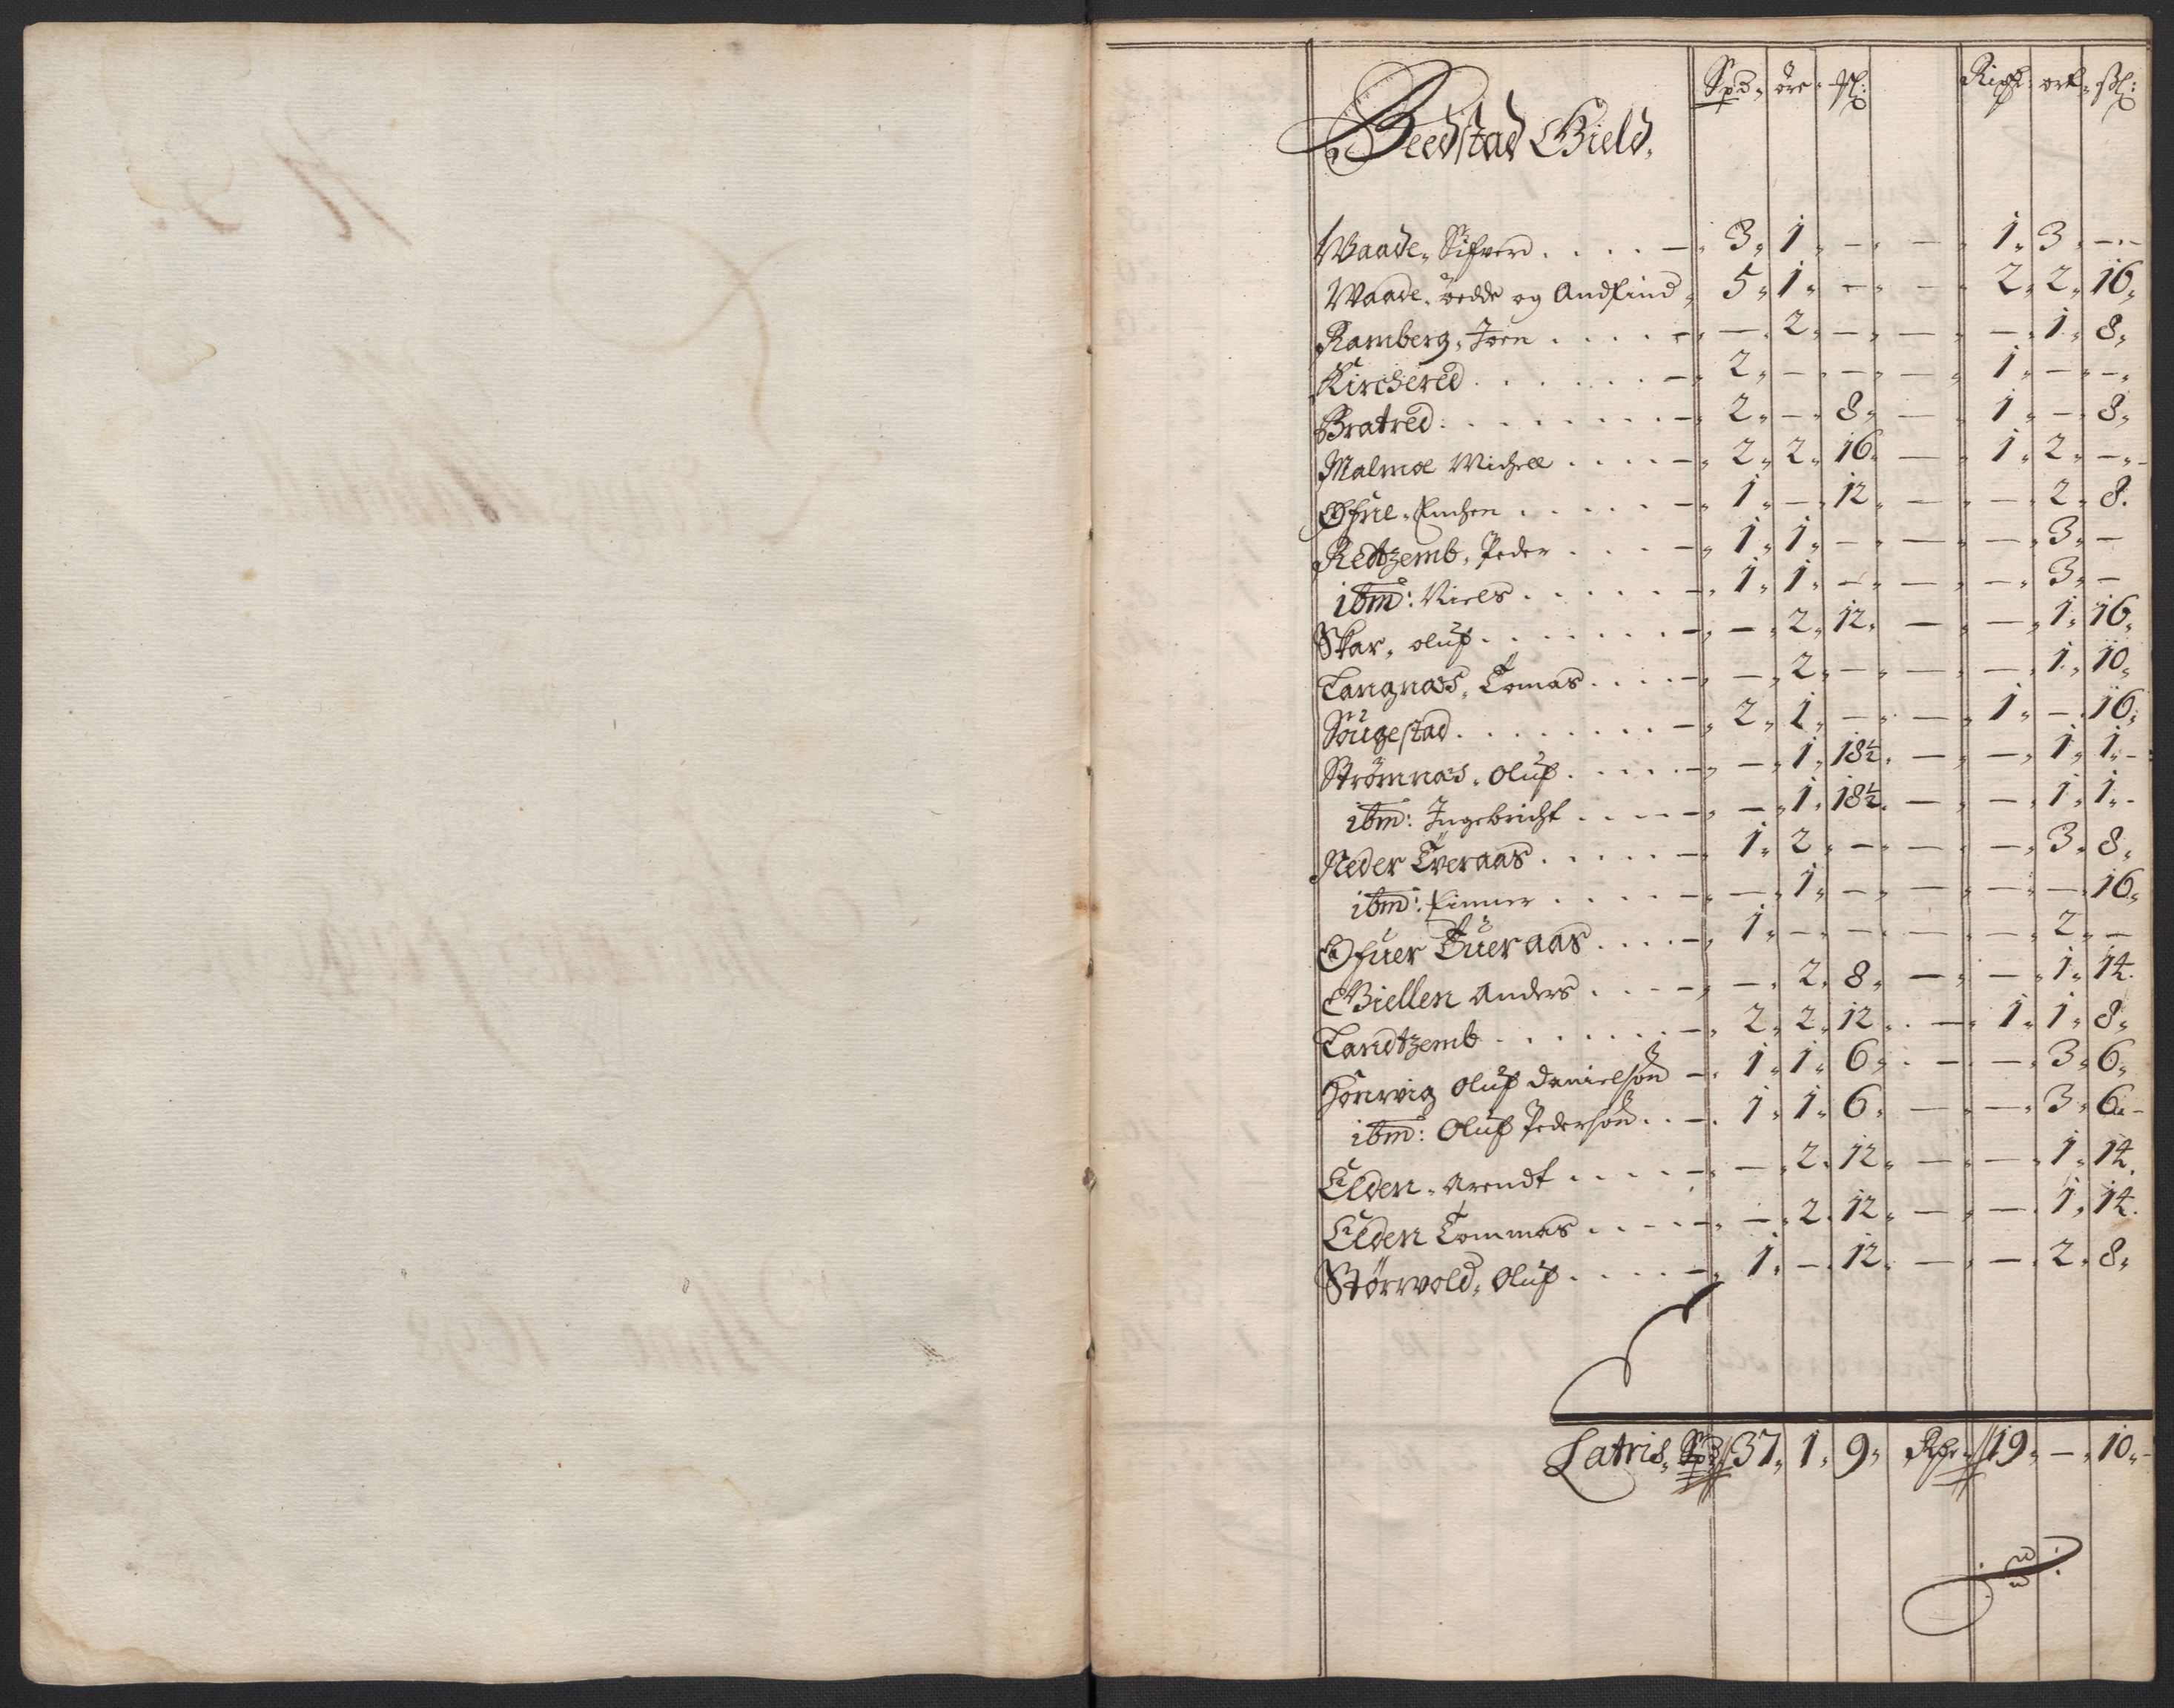 Spd, öre, ꝑl: Rixdl: ort, ßl:
Beedstad Gield,
Waade, Sifver . . . . — 3, 1, — — 1, 3, —
Waade, öedde og Andfind, 5, 1, — — 2, 2, 16,
Ramberg, Joen . . . . — — 2, — — — 1, 8,
Kirchered . . . . . . — 2, — — — 1, — —
Bratred: . . . . . . . — 2, — 8, — 1, — 8,
Malmoe Michell . . . . — 2, 2, 16, — 1, 2, —
Øfrie, Enchen . . . . . — 1, — 12, — — 2, 8.
Redtzemb, Peder . . . — 1, 1, — — — 3, —
ibm: Niels . . . . . — 1, 1, — — — 3, —
Skar, oluf . . . . . . . — — 2, 12, — — 1, 16,
Langnæs, Tomas . . . . — — 2, — — — 1, 10,
Sougestad . . . . . . . . — 2, 1, — — 1, — 16,
Strömnæs, Oluf . . . . . — — 1, 18½, — — 1, 1,
ibm: Ingebricht . . . . — — 1, 18½, — — 1, 1,
Neder Tveraas . . . . . — 1, 2, — — — 3, 8,
ibm: Einner . . . . — — 1, — — — — 16,
Ofuer Tueraas . . . . — 1, — — — — 2, —
Giellen Anders . . . . — — 2, 8, — — 1, 14.
Landtzemb . . . . . . . — 2, 2, 12, . — 1, 1, 8,
Honrvig Oluf Danielsön — 1, 1, 6, — — 3, 6,
ibm: Oluf Pedersön . . — 1, 1, 6, — — 3, 6,
Elden, Arendt . . . . — — 2, 12, — — 1, 14,
Elden Tommas . . . . — — 2, 12, — — 1, 14.
Störwold, Oluf . . . . — 1, — 12, — — 2, 8,
Latris, Spd 37, 1, 9, Rdr 19, — 10,